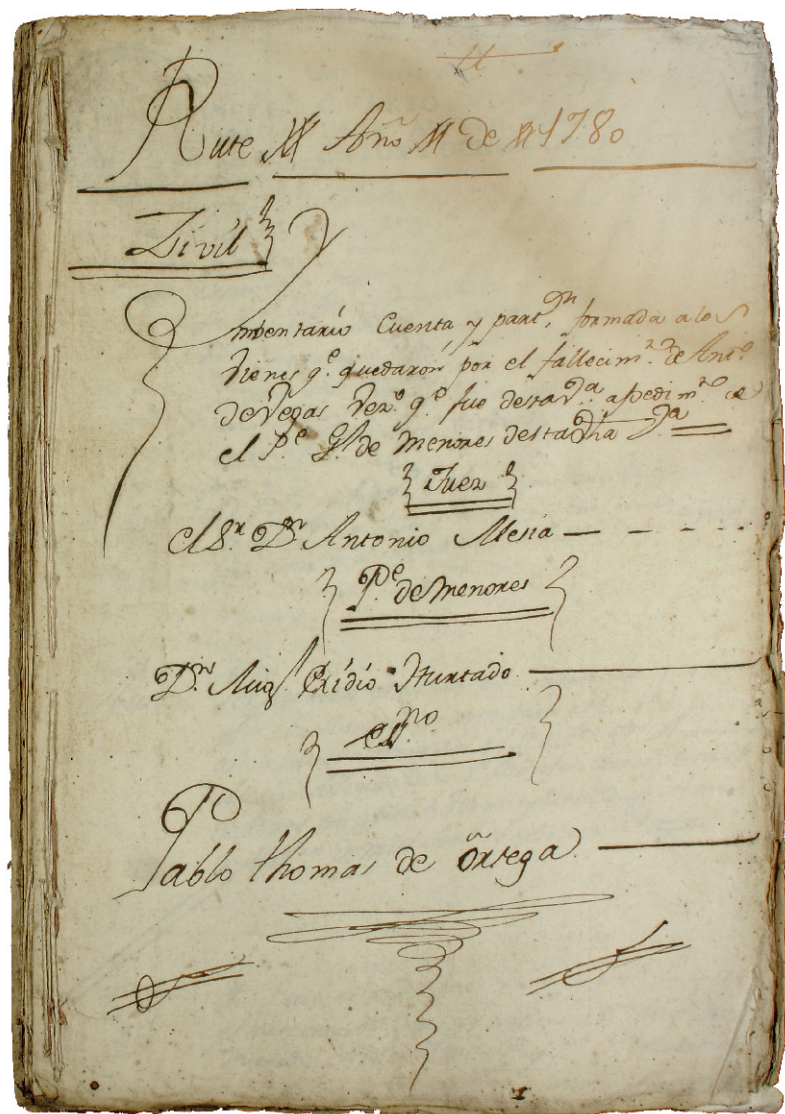 Rute Año de 1780
Zivil
Inbentario Cuenta y partⁿ, formada a los
vienes q.e quedaron por el fallecim.to de Ant.o
de Vegas Vez.o q.e fue desta v.a a pedim.to de
el P.e G.l de Menores desta dha V.a
Juez
el S.r D.n Antonio Mesia
P.e de Menores
D.n Mig.l Hurtado
Es.no
Pablo thomas de Ortega